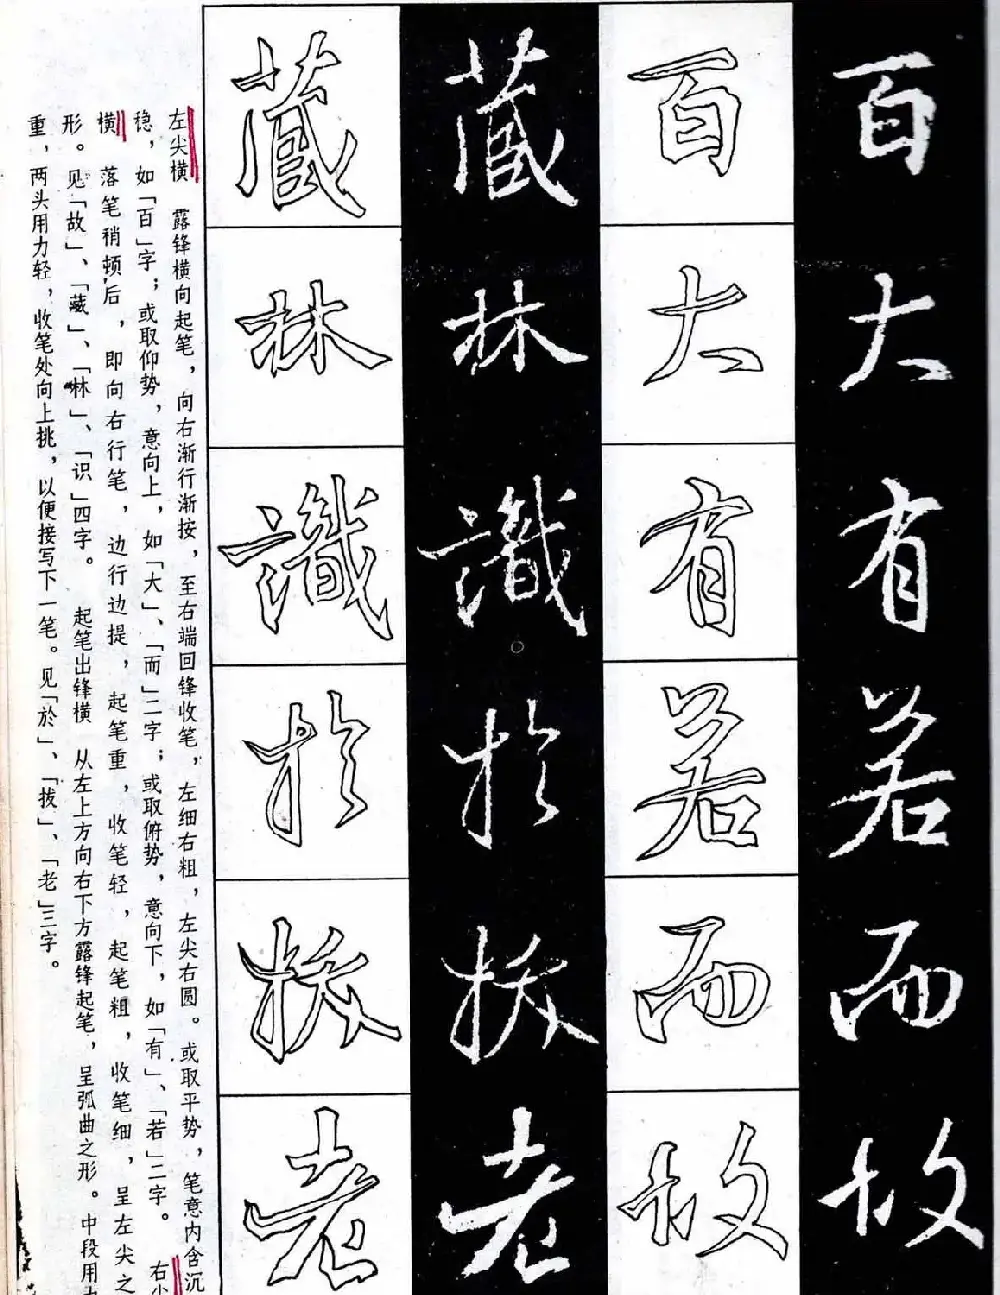 百
大
有
若
而
故
百
大
有
若
而
故
藏
林
識
於
拔
老
藏
林
識
於
拔
老
左尖横 露锋横向起笔，向右渐行渐按，至右端回锋收笔，左细右粗，左尖右圆。或取平势，笔意内含沉
稳，如「百」字；或取仰势，意向上，如「大」、「而」二字；或取俯势，意向下，如「有」、「若」二字。 右
横 落笔稍顿后，即向右行笔，边行边提，起笔重，收笔轻，起笔粗，收笔细，呈左尖之
形。见「故」、「藏」、「林」、「识」四字。 起笔出锋横 从左上方向右下方露锋起笔，呈弧曲之形。中段用
重，两头用力轻，收笔处向上挑，以便接写下一笔。见「於」、「拔」、「老」三字。